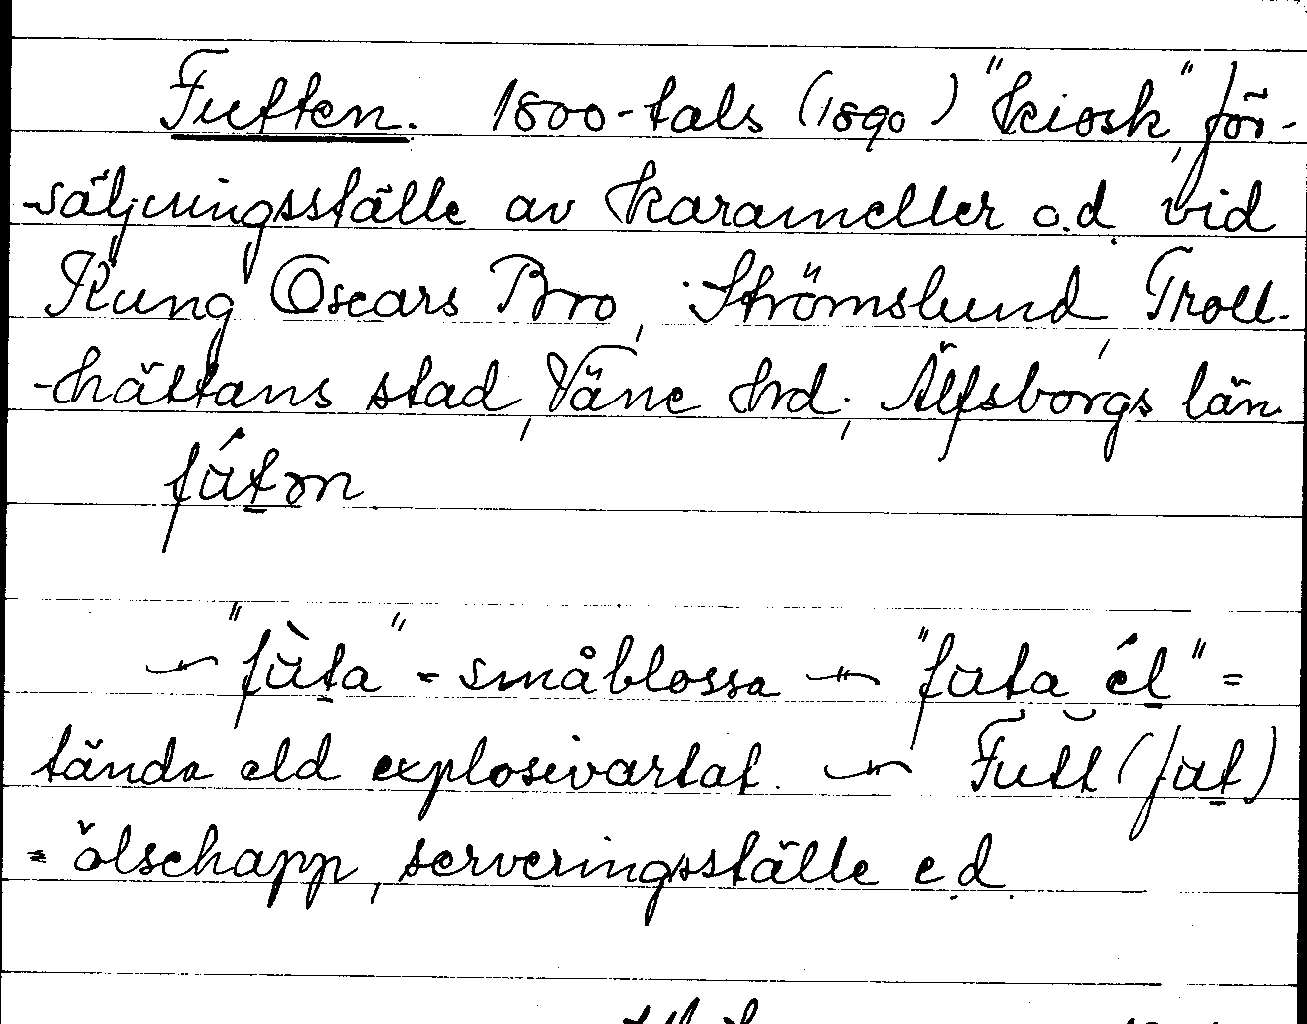 Futten. 1800-tals (1890) "kiosk", för-
säljningsställe av karameller o.d. vid
Kung Oscars Bro, Strömslund, Troll-
-hättans stad, Väne hrd; Älfsborgs län
fút̲ən
— "fùt̲a" = småblossa — "futa él̲" =
tända eld explosivartat. — Futt (fŭt̲)
= ölschapp, serveringsställe e.d.